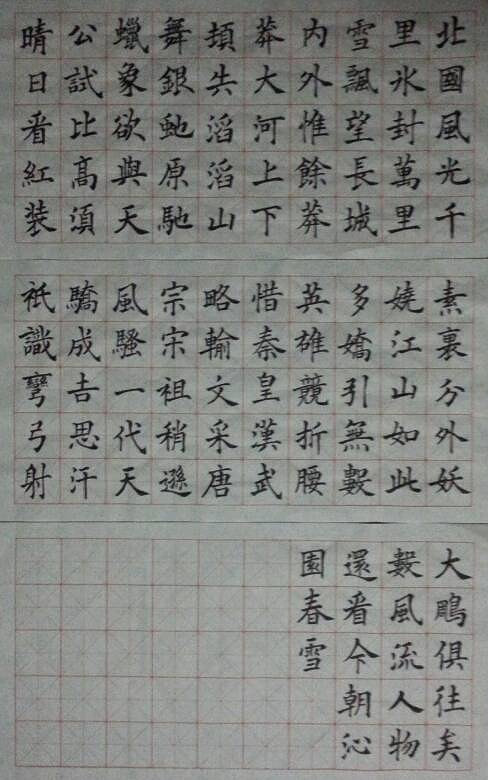 北國風光千
里氷封萬里
雪飄望長城
内外惟餘莽
莽大河上下
頓失滔滔山
舞銀虵原馳
蠟象欲與天
公試比高須
晴日看紅装
素裹分外妖
嬈江山如此
多嬌引無數
英雄競折腰
惜秦皇漢武
略輸文采唐
宗宋祖稍遜
風騷一代天
驕成吉思汗
衹識彎弓射
大鵰俱往矣
數風流人物
還看今朝沁
園春雪